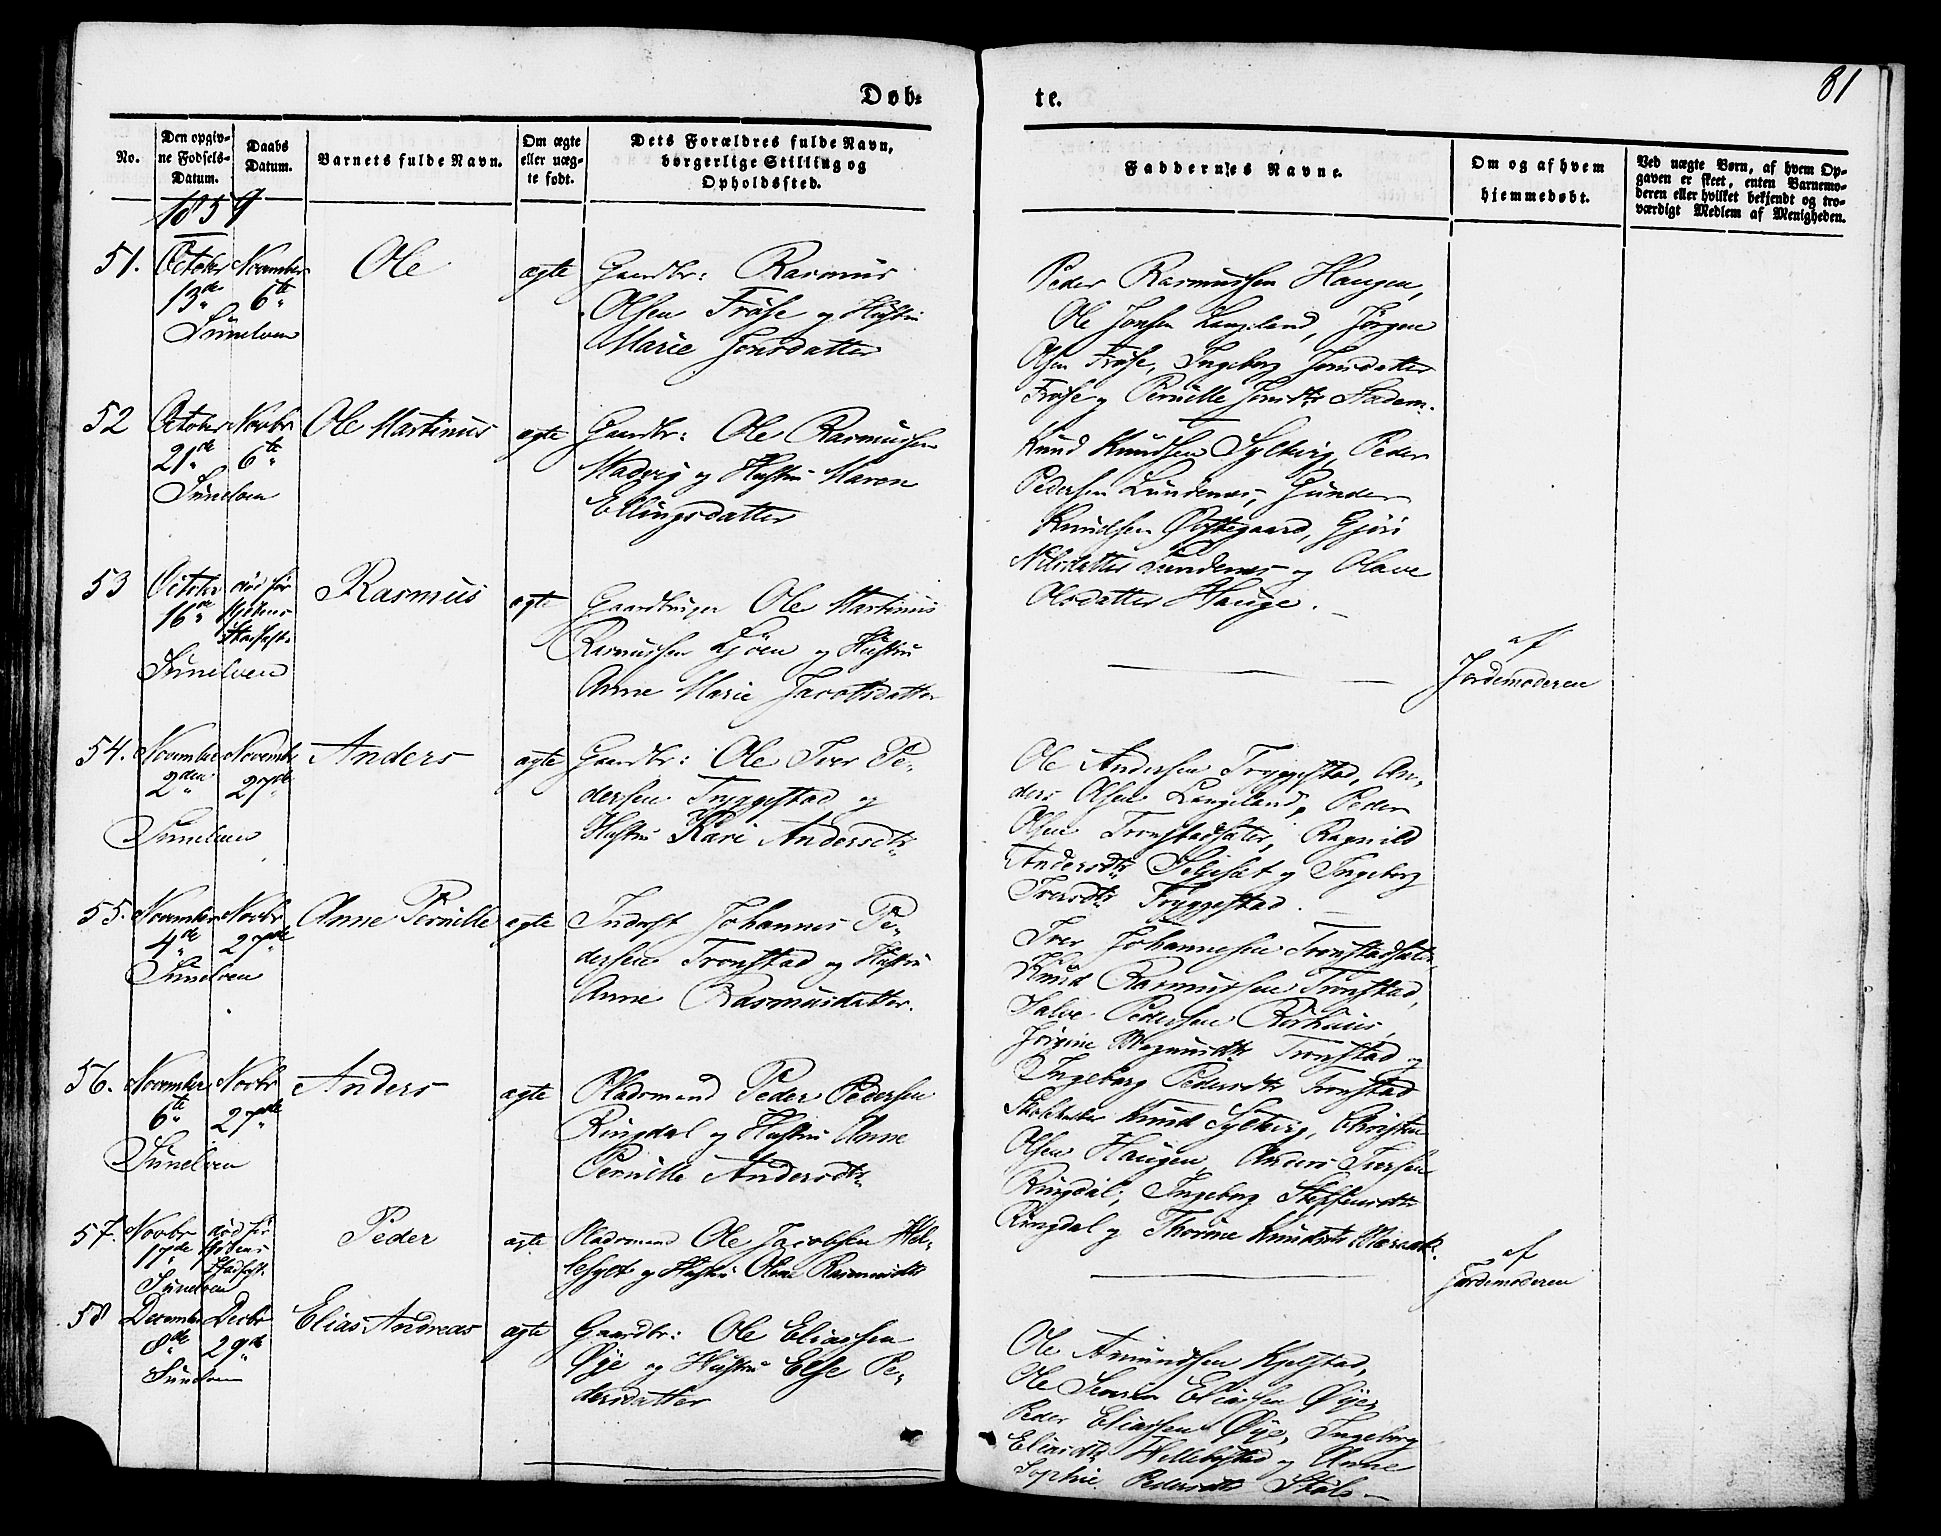 Døb-
te.
81
No.
Den opgiv-
ne Fødsels-
Datum.
Daabs
Datum.
Barnets fulde Navn.
Om ægte
eller uæg-
te født.
Dets Forældres fulde Navn,
borgerlige Stilling og
Opholdssted.
Faddernes Navne.
Om og af hvem
hjemmedøbt.
Ved uægte Børn, af hvem Op-
gaven er skeet, enten Barnemo-
deren eller hvilket bekjendt og tro-
værdigt Medlem af Menigheden.
1859
51. October 13de November 6te Ole ægte Gaardbr: Rasmus
Sunelven
Olsen Frøse og Hustru
Marie Jonsdatter
Peder Rasmussen Haugen,
Ole Jonsen Langeland, Jørgen
Olsen Frøse, Ingeborg Jonsdatter
Frøse og Pernille Jonsdtr Stadem.
52 October 21de Novbr 6te Ole Martinus ægte Gaardbr: Ole Rasmussen
Sunelven
Madvig og Hustru Maren
Ellingsdatter
Knud Knudsen Syltevig, Peder
Pedersen Lundenes, Gunder
Knudsen Østegaard, Gjøri
Nilsdatter Lundenes og Olave
Olsdatter Hauge.
53 October 16de død før Kirkens Stadfæst. Rasmus ægte Gaardbruger Ole Martinus
Sunelven
Rasmussen Ljøen og Hustru
Anne Marie Jacobsdatter
af
Jordemoderen
54. November 2den November 27de Anders ægte Gaardbr: Ole Iver Pe-
Sunelven
dersen Tryggestad og
Hustru Kari Andersdtr
Ole Andersen Tryggestad, An-
ders Olsen Langeland, Peder
Olsen Tronstadsæter, Ragnild
Andersdtr Seljeset og Ingeborg
Iversdtr Tryggestad.
55. November 4de Novbr 27de Anne Pernille ægte Inderst Johannes Pe-
Sunelven
dersen Tronstad og Hustru
Anne Rasmusdatter.
Iver Johannesen Tronstadsæter,
Knud Rasmussen Tronstad,
Salve Pedersen Korhuus,
Jørgine Magnusdtr Tronstad og
Ingeborg Pedersdtr Tronstad
56. November 6te Novbr 27de Anders ægte Pladsmand Peder Pedersen
Sunelven
Ringdal og Hustru Anne
Pernille Andersdtr
Skoleholder Knud Syltevig, Christen
Olsen Haugen, Anders Iversen
Ringdal, Ingeborg Steffensdtr
Ringdal og Thorine Knudsdtr Maraak.
57. Novbr 17de død før Kirkens Stadfæst. Peder ægte Pladsmand Ole Jacobsen Hel-
Sunelven
lesylt og Hustru Oline Rasmusdtr
af
Jordemoderen
58 December 8de Decbr 29de Elias Andreas ægte Gaardbr: Ole Eliassen
Sunelven
Øye og Hustru Else Pe-
dersdatter
Ole Amundsen Kjelstad,
Ole Severin Eliassen Øye,
Peder Eliassen Øye, Ingeborg
Eliasdtr Hellebostad og Anne
Sophie Pedersdtr Skale